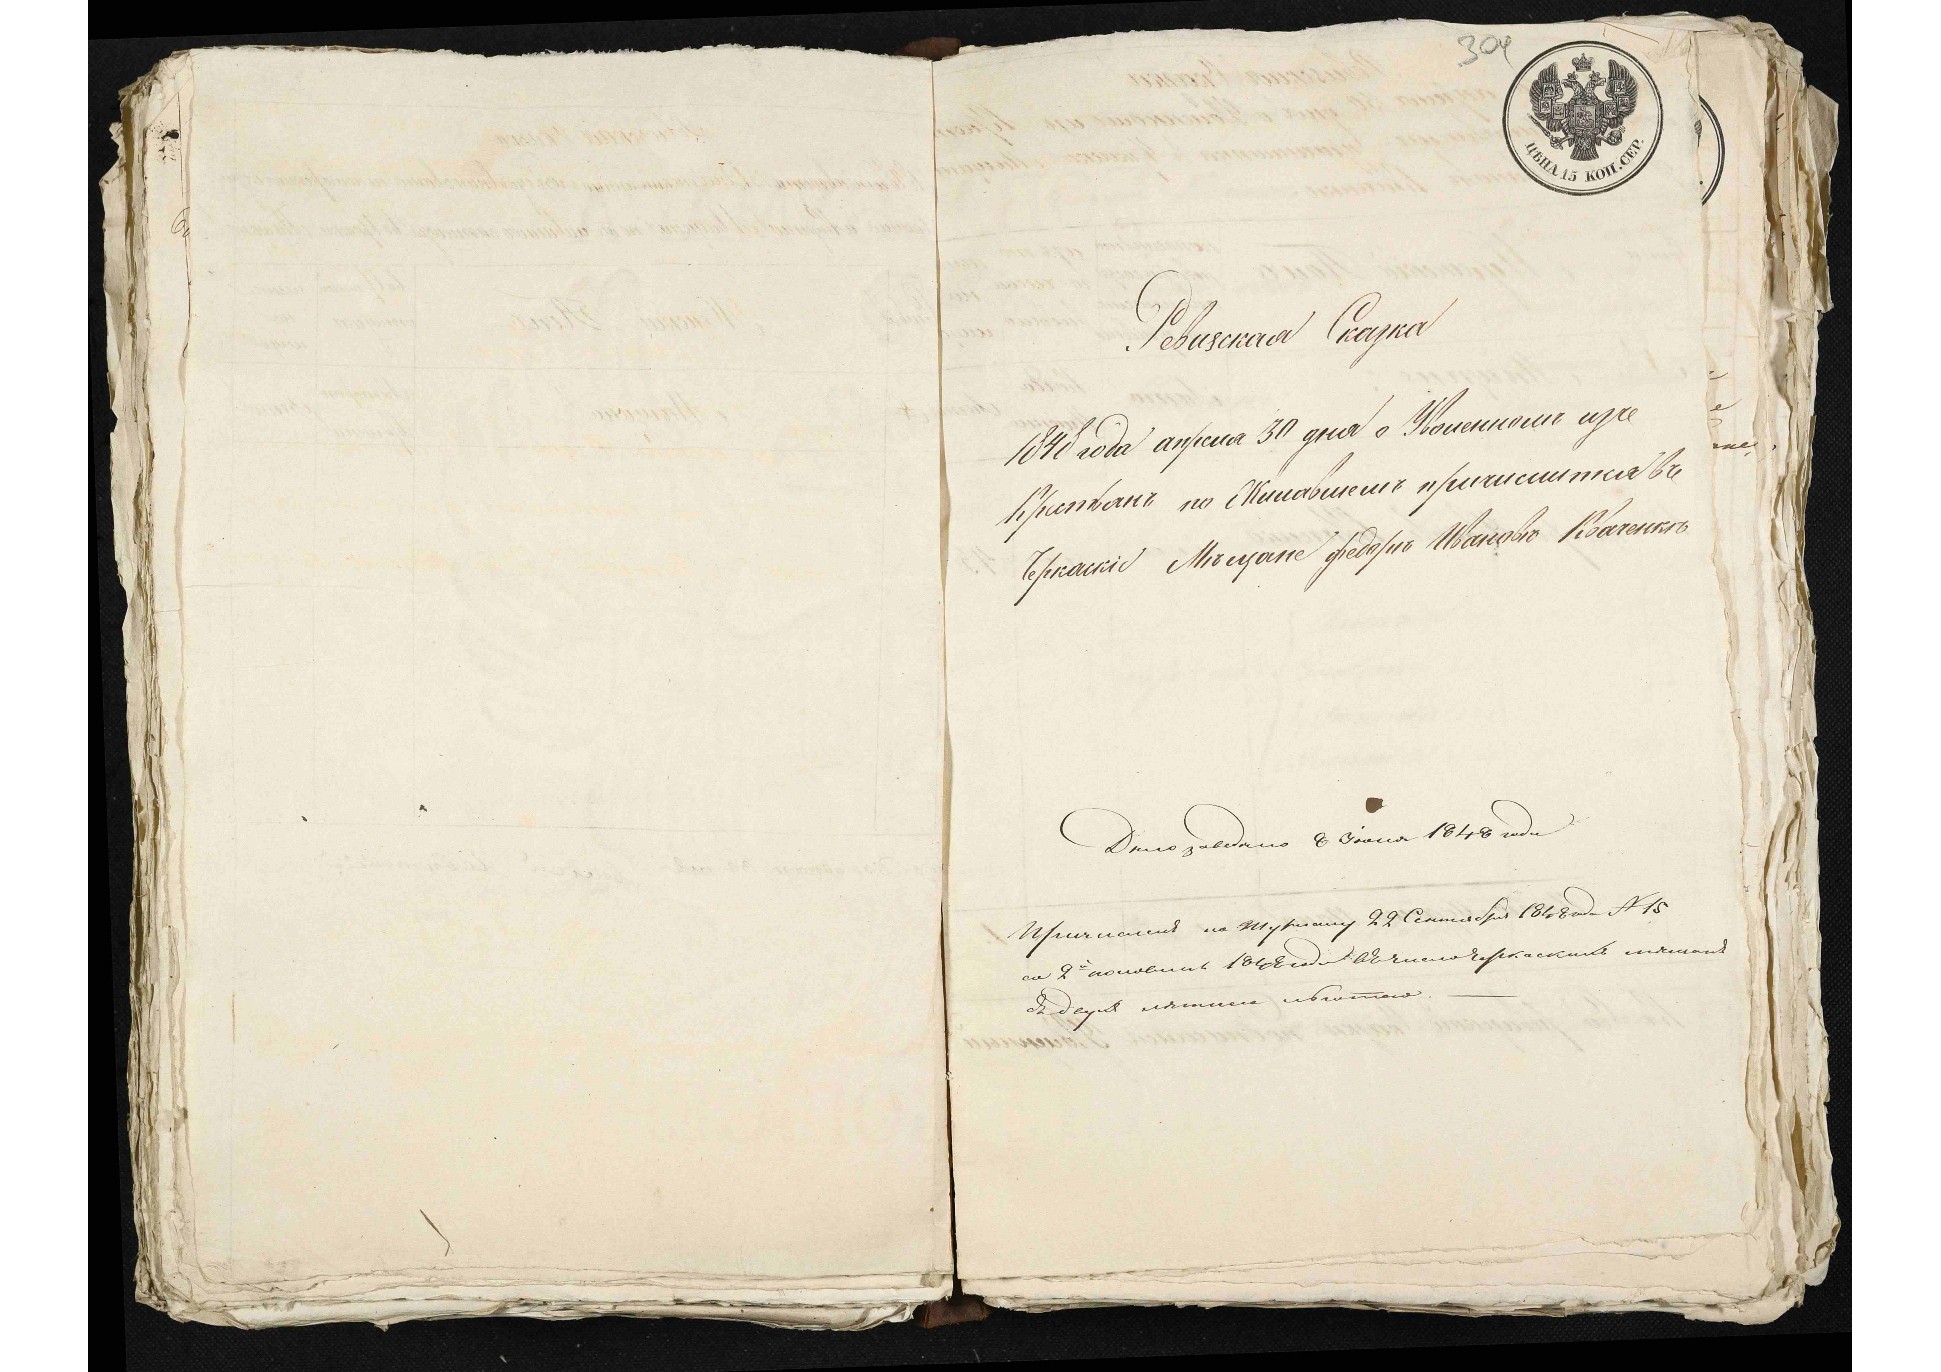 304
ЦѢНА 15 КОП. СЕР.
Ревизская Сказка
1848 года апреля 30 дня о Уволенномъ изъ
Крестьянъ по Желавшемъ причислится въ
Черкаскіе Мѣщане Федоръ Ивановъ Кваченкѣ
Дело заведено 8 Июня 1848 года
Причисленъ по журналу 22 Сентября 1848 года N 15
со 2й половины 1848 года въ число черкаскихъ мѣщанъ
съ двух лѣтнею льготою.